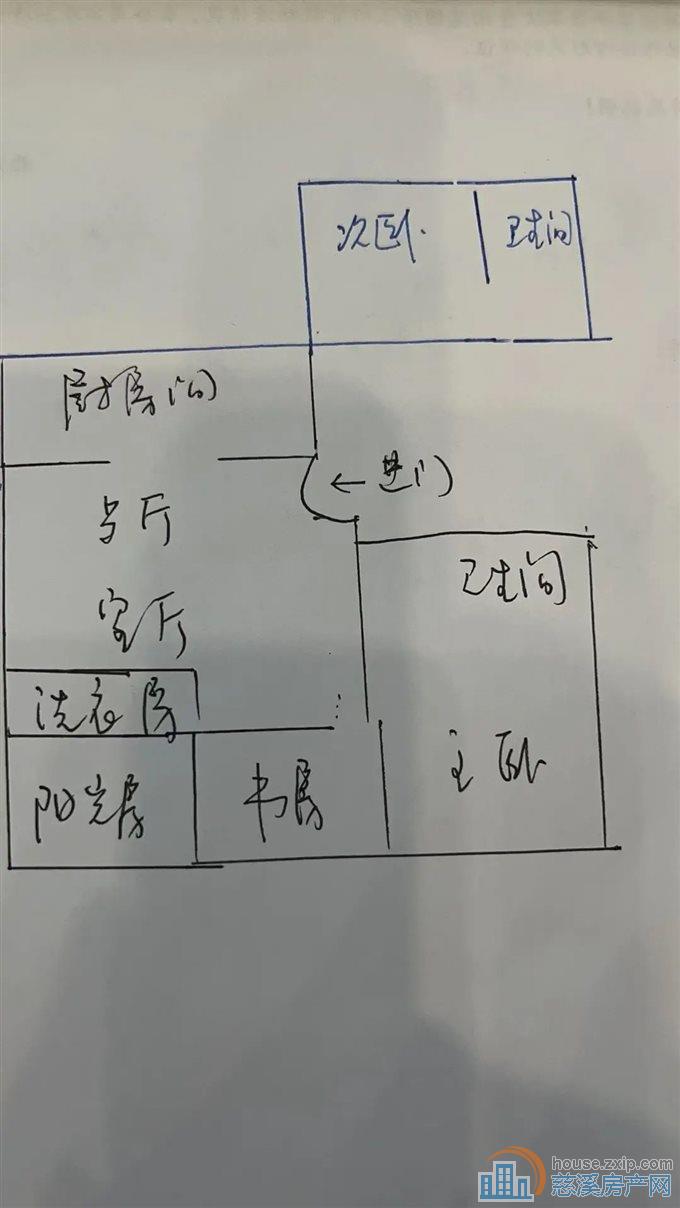 次卧
卫生间
厨房间
←进门
客厅
卫生间
洗衣房
主卧
阳光房
书房
house.zxip.com
慈溪房产网